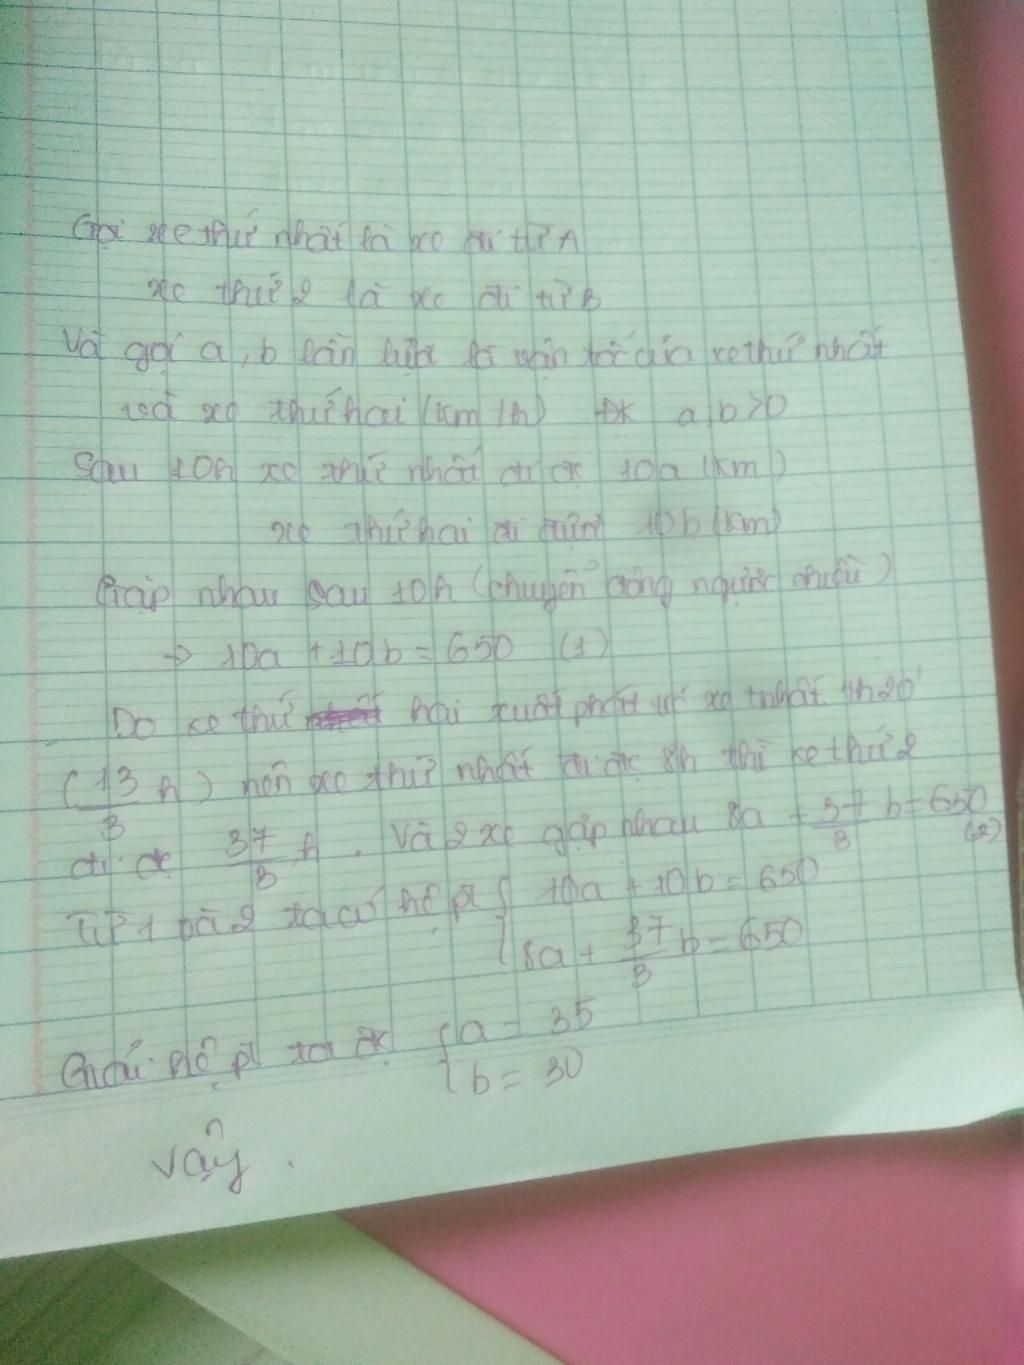 Gọi xe thứ nhất là xe đi từ A
xe thứ 2 là xe đi từ B
Và gọi a, b lần lượt là vận tốc của xe thứ nhất
và xe thứ hai (km/h) ĐK a, b > 0
Sau 10h xe thứ nhất đi đc 10a (km)
xe thứ hai đi được 10b (km)
Gặp nhau sau 10h (chuyển động ngược chiều)
→ 10a + 10b = 650 (1)
Do xe thứ hai xuất phát xe nhất 4h20'
(13/3 h) nên xe thứ nhất đi đc 8h thì xe thứ 2
đi đc 37/3 h. Và 2 xe gặp nhau 8a + 37/3 b = 650 (2)
Từ 1 và 2 ta có hệ pt { 10a + 10b = 650
8a + 37/3 b = 650
Giải hệ pt ta đc { a = 35
b = 30
Vậy.